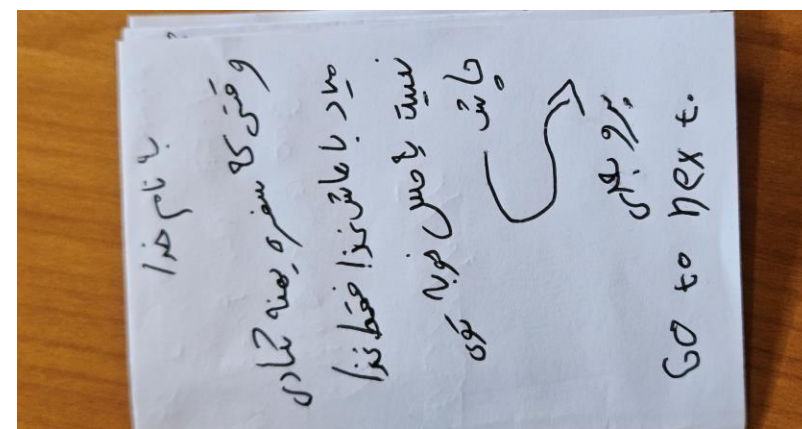 با نام خدا
وقتی که سفره پهنه نگاری
میاد باهاش غذا فقط غذا
نیست یا حس خوبه توی
جاش
برو بعدی
Go to next.